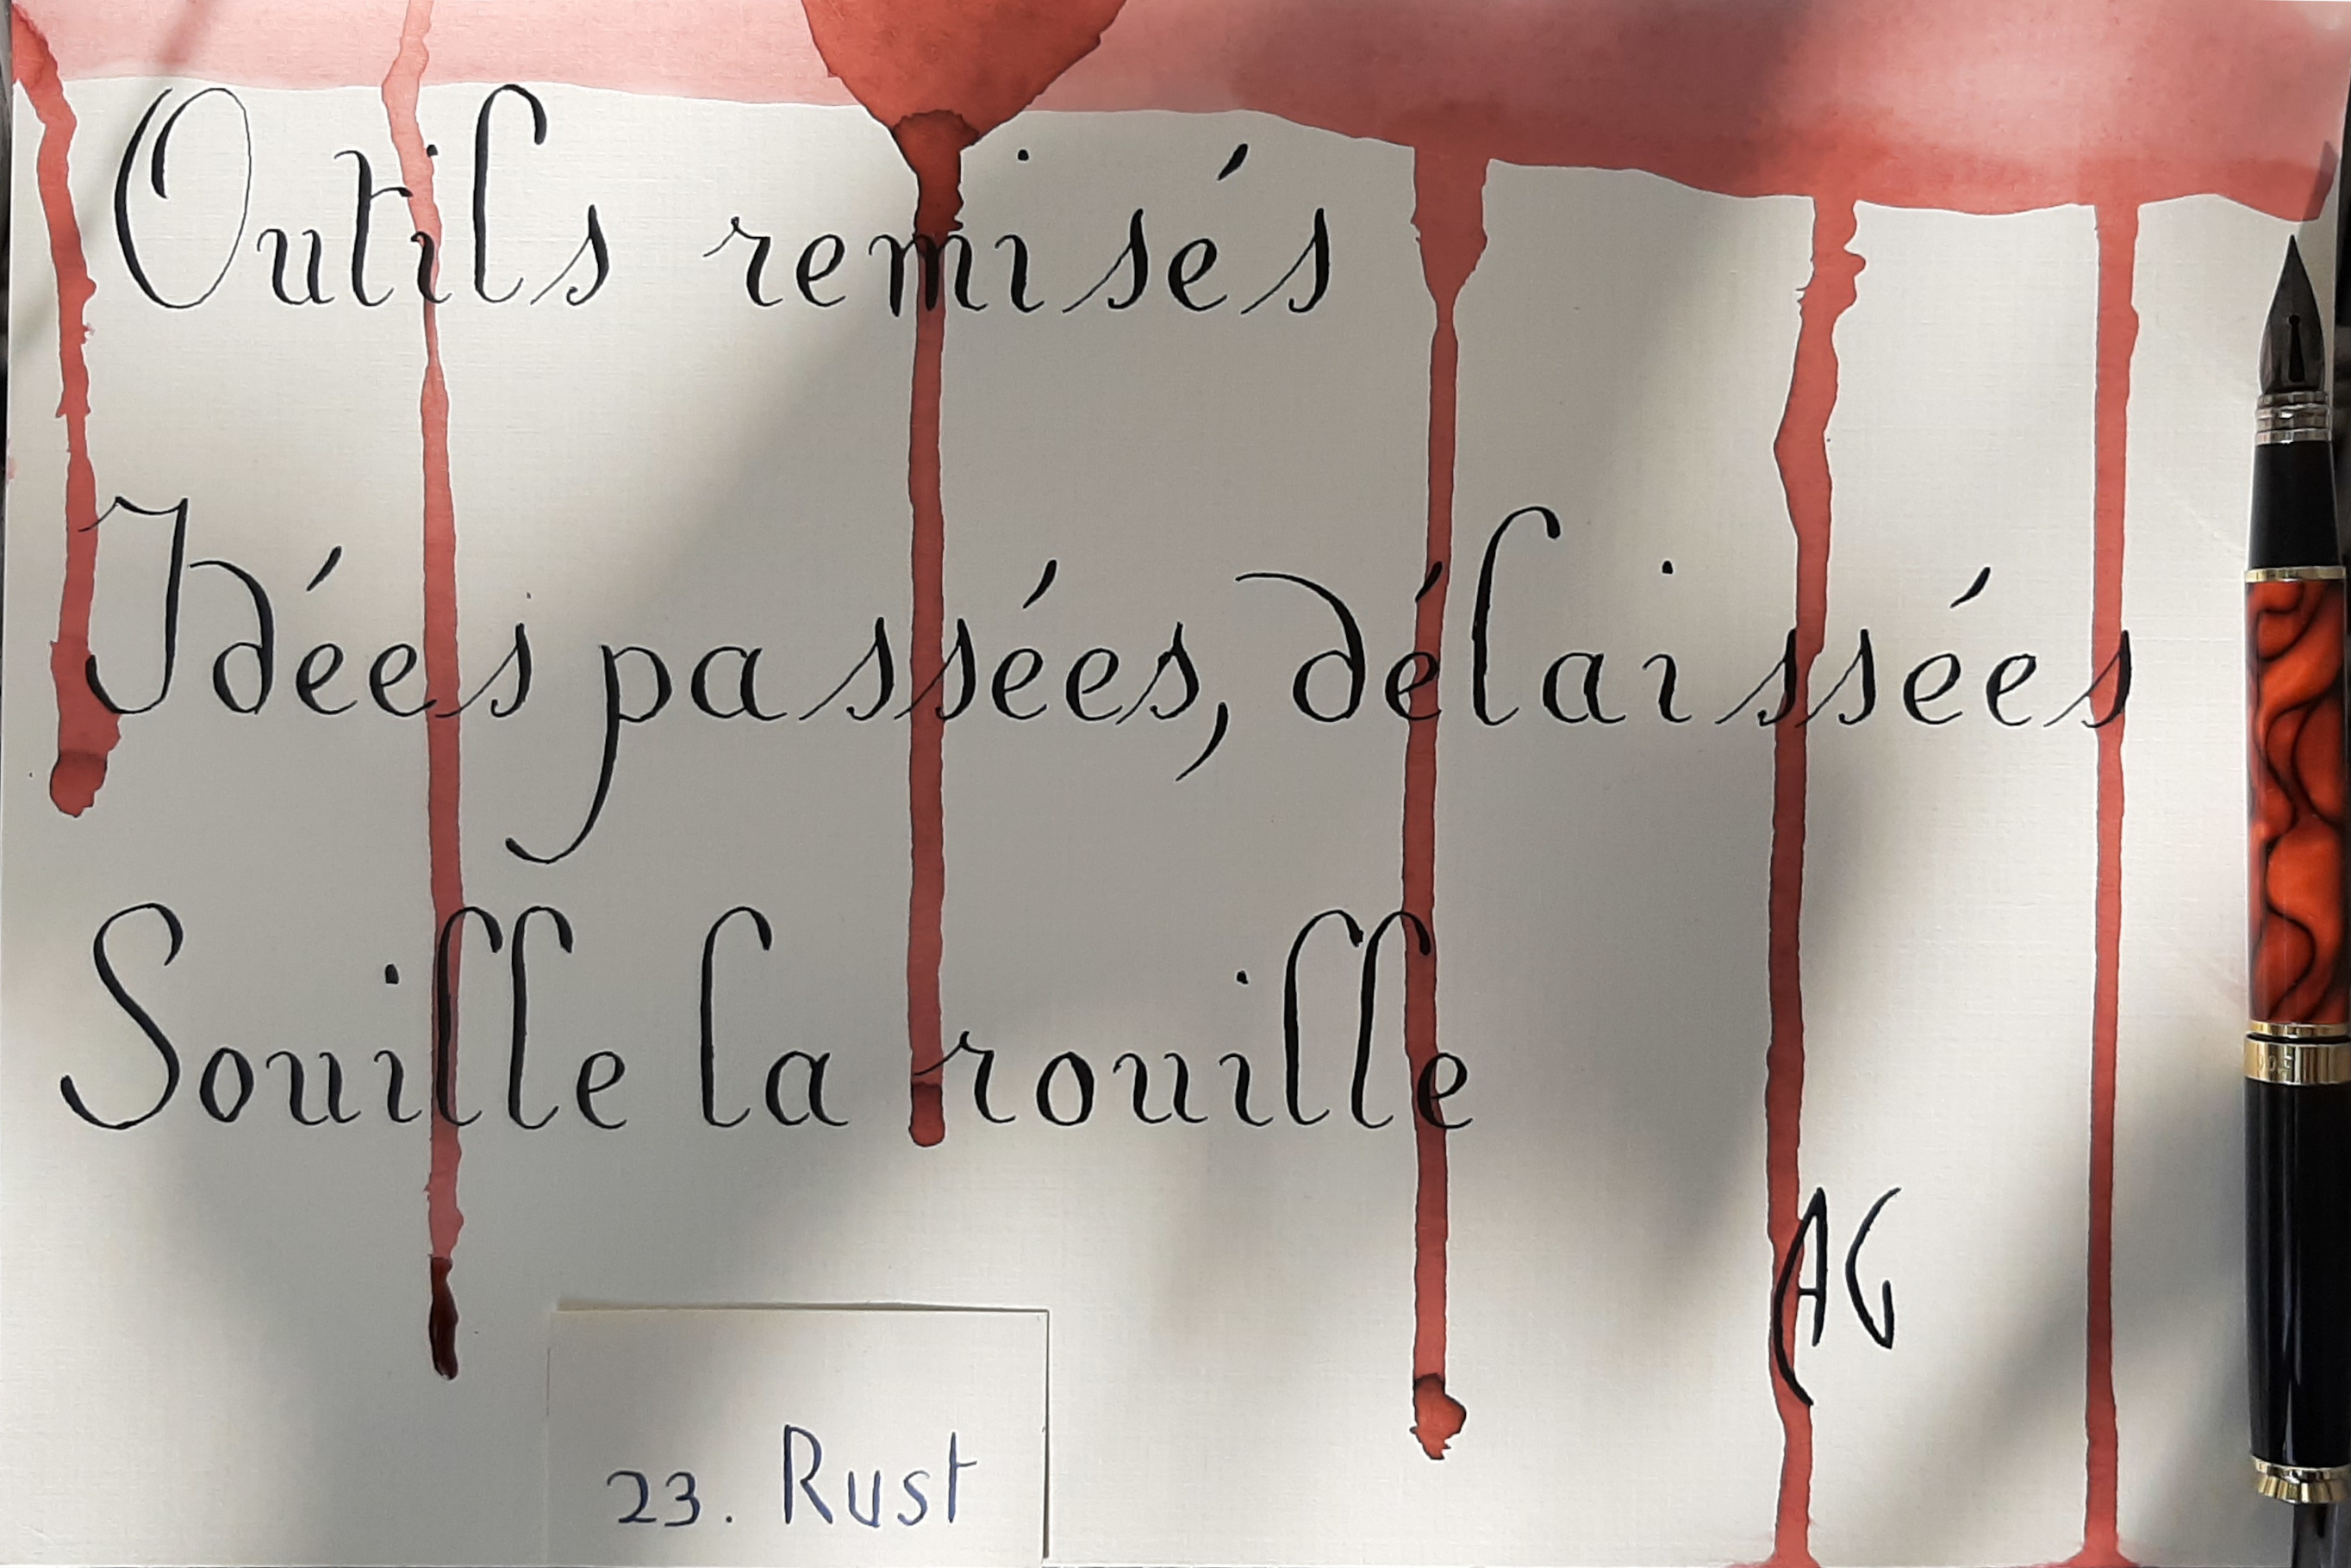 Outils remisés
Idées passées, délaissées
Souille la rouille
AG
23. Rust